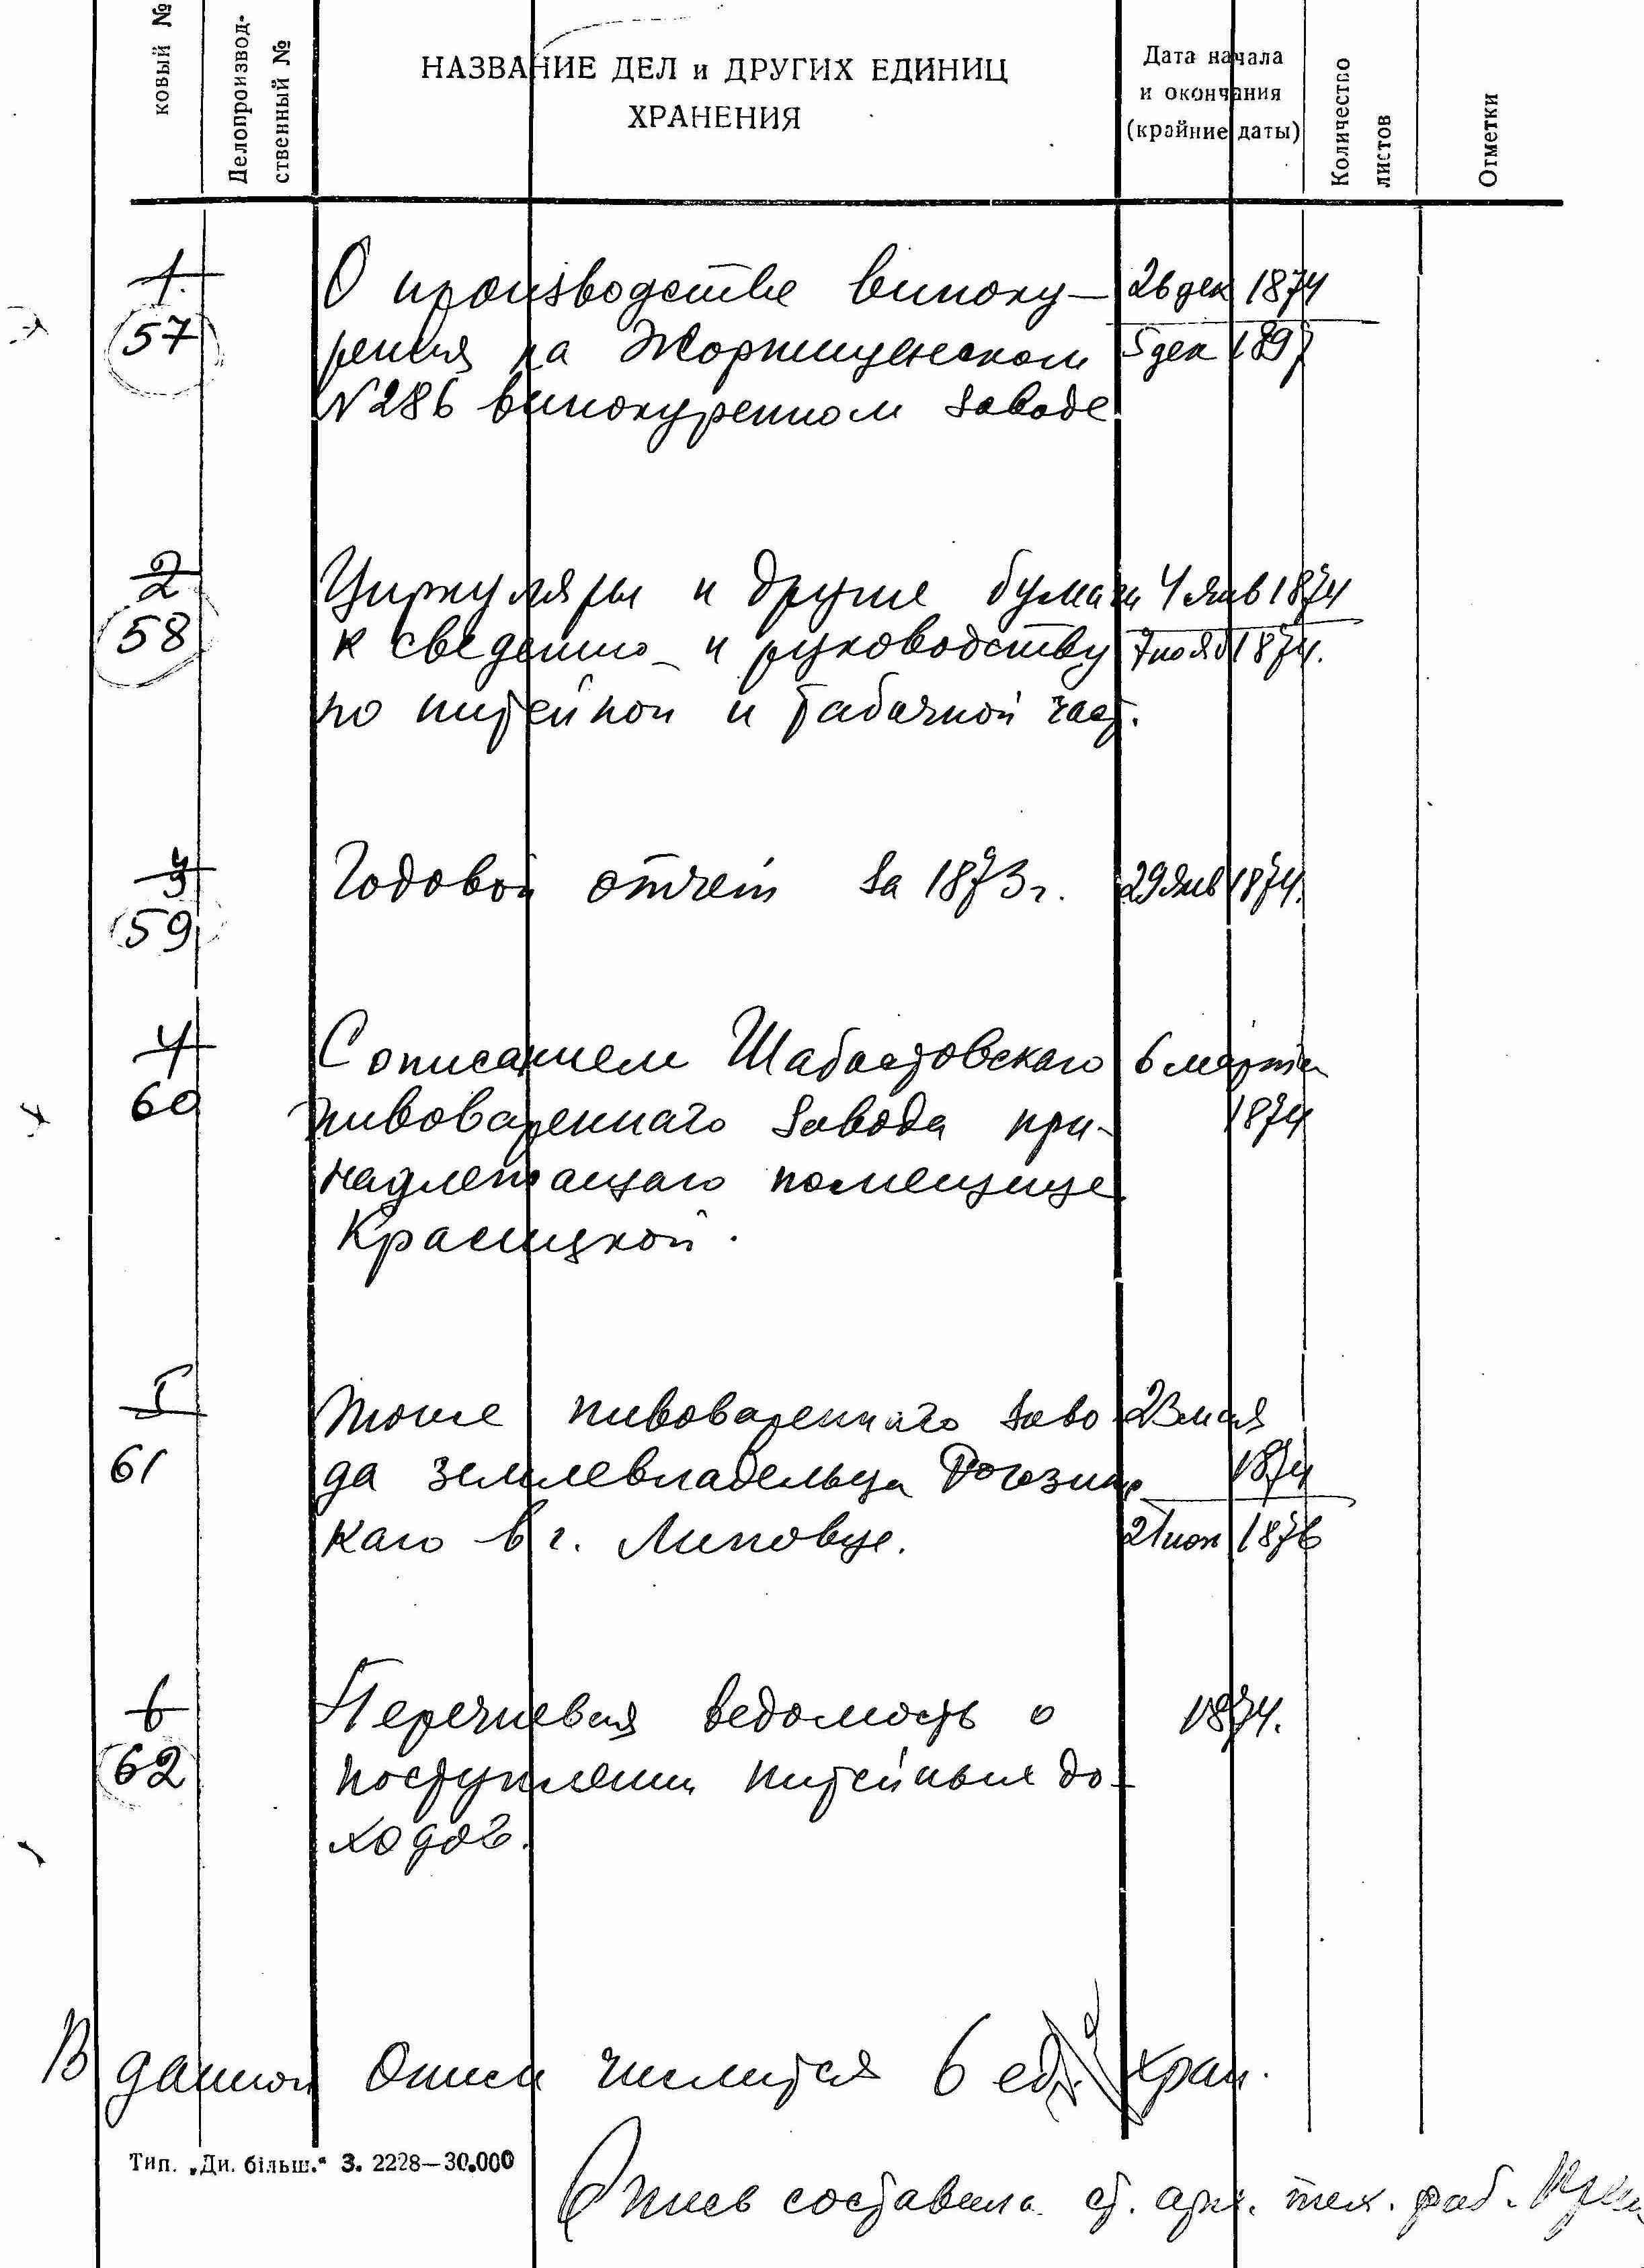 ковый №
Делопроизвод-
ственный №
НАЗВАНИЕ ДЕЛ и ДРУГИХ ЕДИНИЦ
ХРАНЕНИЯ
Дата начала
и окончания
(крайние даты)
Количество
листов
Отметки
1.
57
О производстве виноку-
рения на Жорнищенском
№286 винокуренном заводе
26 дек 1874
5 дек 1897
2
58
Циркуляры и другие бумаги
к сведению и руководству
по питейной и табачной част.
4 янв 1874
7 нояб 1874.
3
59
Годовой отчет за 1873 г.
29 янв 1874.
4
60
С описанием Шабастовскаго
пивовареннаго завода при-
надлежащаго помещице
Красицкой.
6 марта
1874
5
61
Тоже пивовареннаго заво-
да землевладельца Рогозинс
каго в г. Липовце.
23 мая
1874
21 июн 1876
6
62
Перечневая ведомость о
поступлении питейных до-
ходов.
1874.
В данной описи числится 6 ед. хран.
Тип. „Ди. більш." З. 2228—30.000
Опись составила ст. арх. тех. раб.